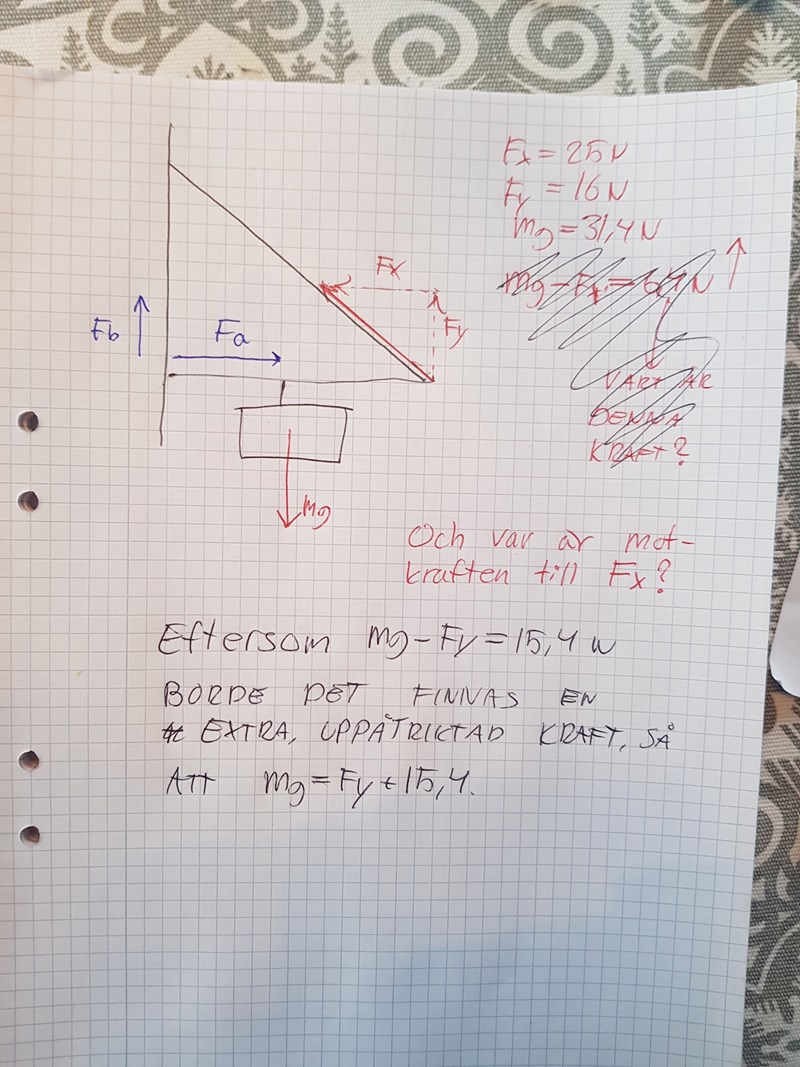 Fx = 25N
Fy = 16N
mg = 31,4 N
mg - Fx =
VART ÄR
DENNA
KRAFT?
Fx
Fy
Fb
Fa
mg
Och var är mot-
kraften till Fx?
Eftersom mg - Fy = 15,4 N
BORDE DET FINNAS EN
EXTRA, UPPÅTRIKTAD KRAFT, SÅ
ATT mg = Fy + 15,4.